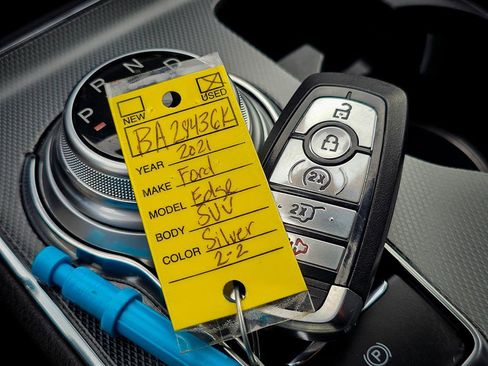 P R N D
NEW USED
BA28436K
YEAR 2021
MAKE Ford
MODEL Edge
BODY SUV
COLOR Silver
2-2
2X
2X
P